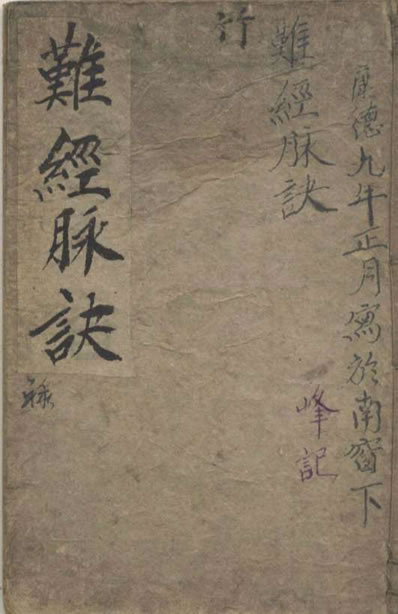 康德九年正月寫於南窗下
難經脉訣
峰記
竹
難經脉訣